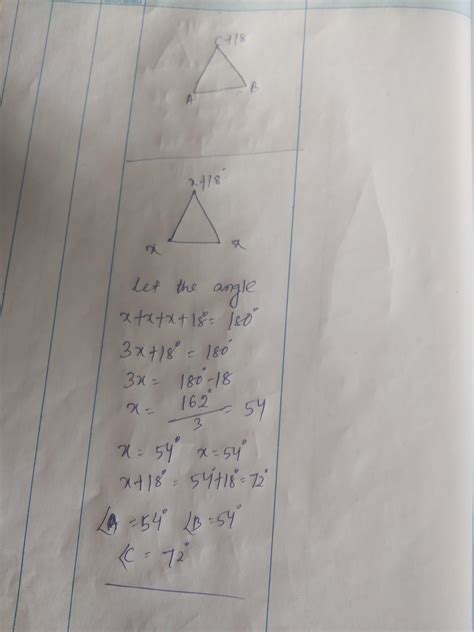 C+18
A B
x+18°
x x
Let the angle
x+x+x+18°=180°
3x+18°=180°
3x= 180°-18
x= 162°/3 = 54
x=54° x=54°
x+18°= 54°+18°=72°
∠A =54° ∠B=54°
∠C = 72°